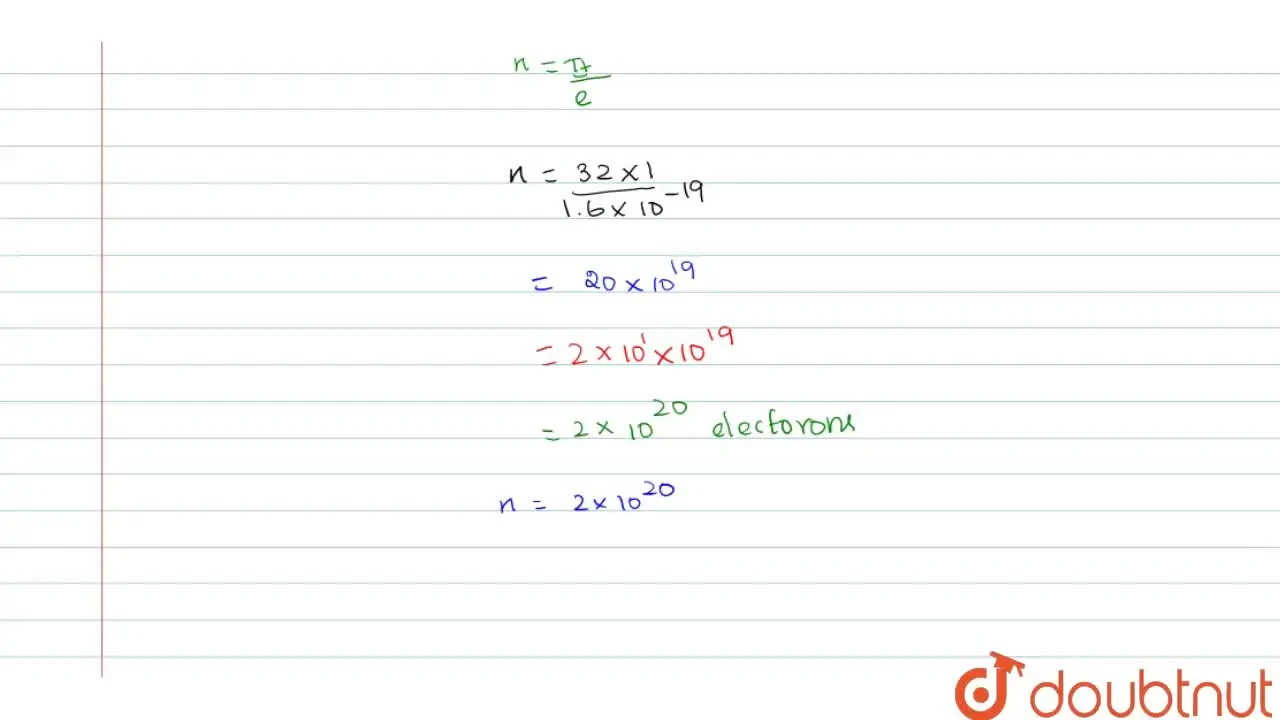 n = It/e
n = 32 × 1 / 1.6 × 10^-19
= 20 × 10^19
= 2 × 10^1 × 10^19
= 2 × 10^20 electorons
n = 2 × 10^20
doubtnut